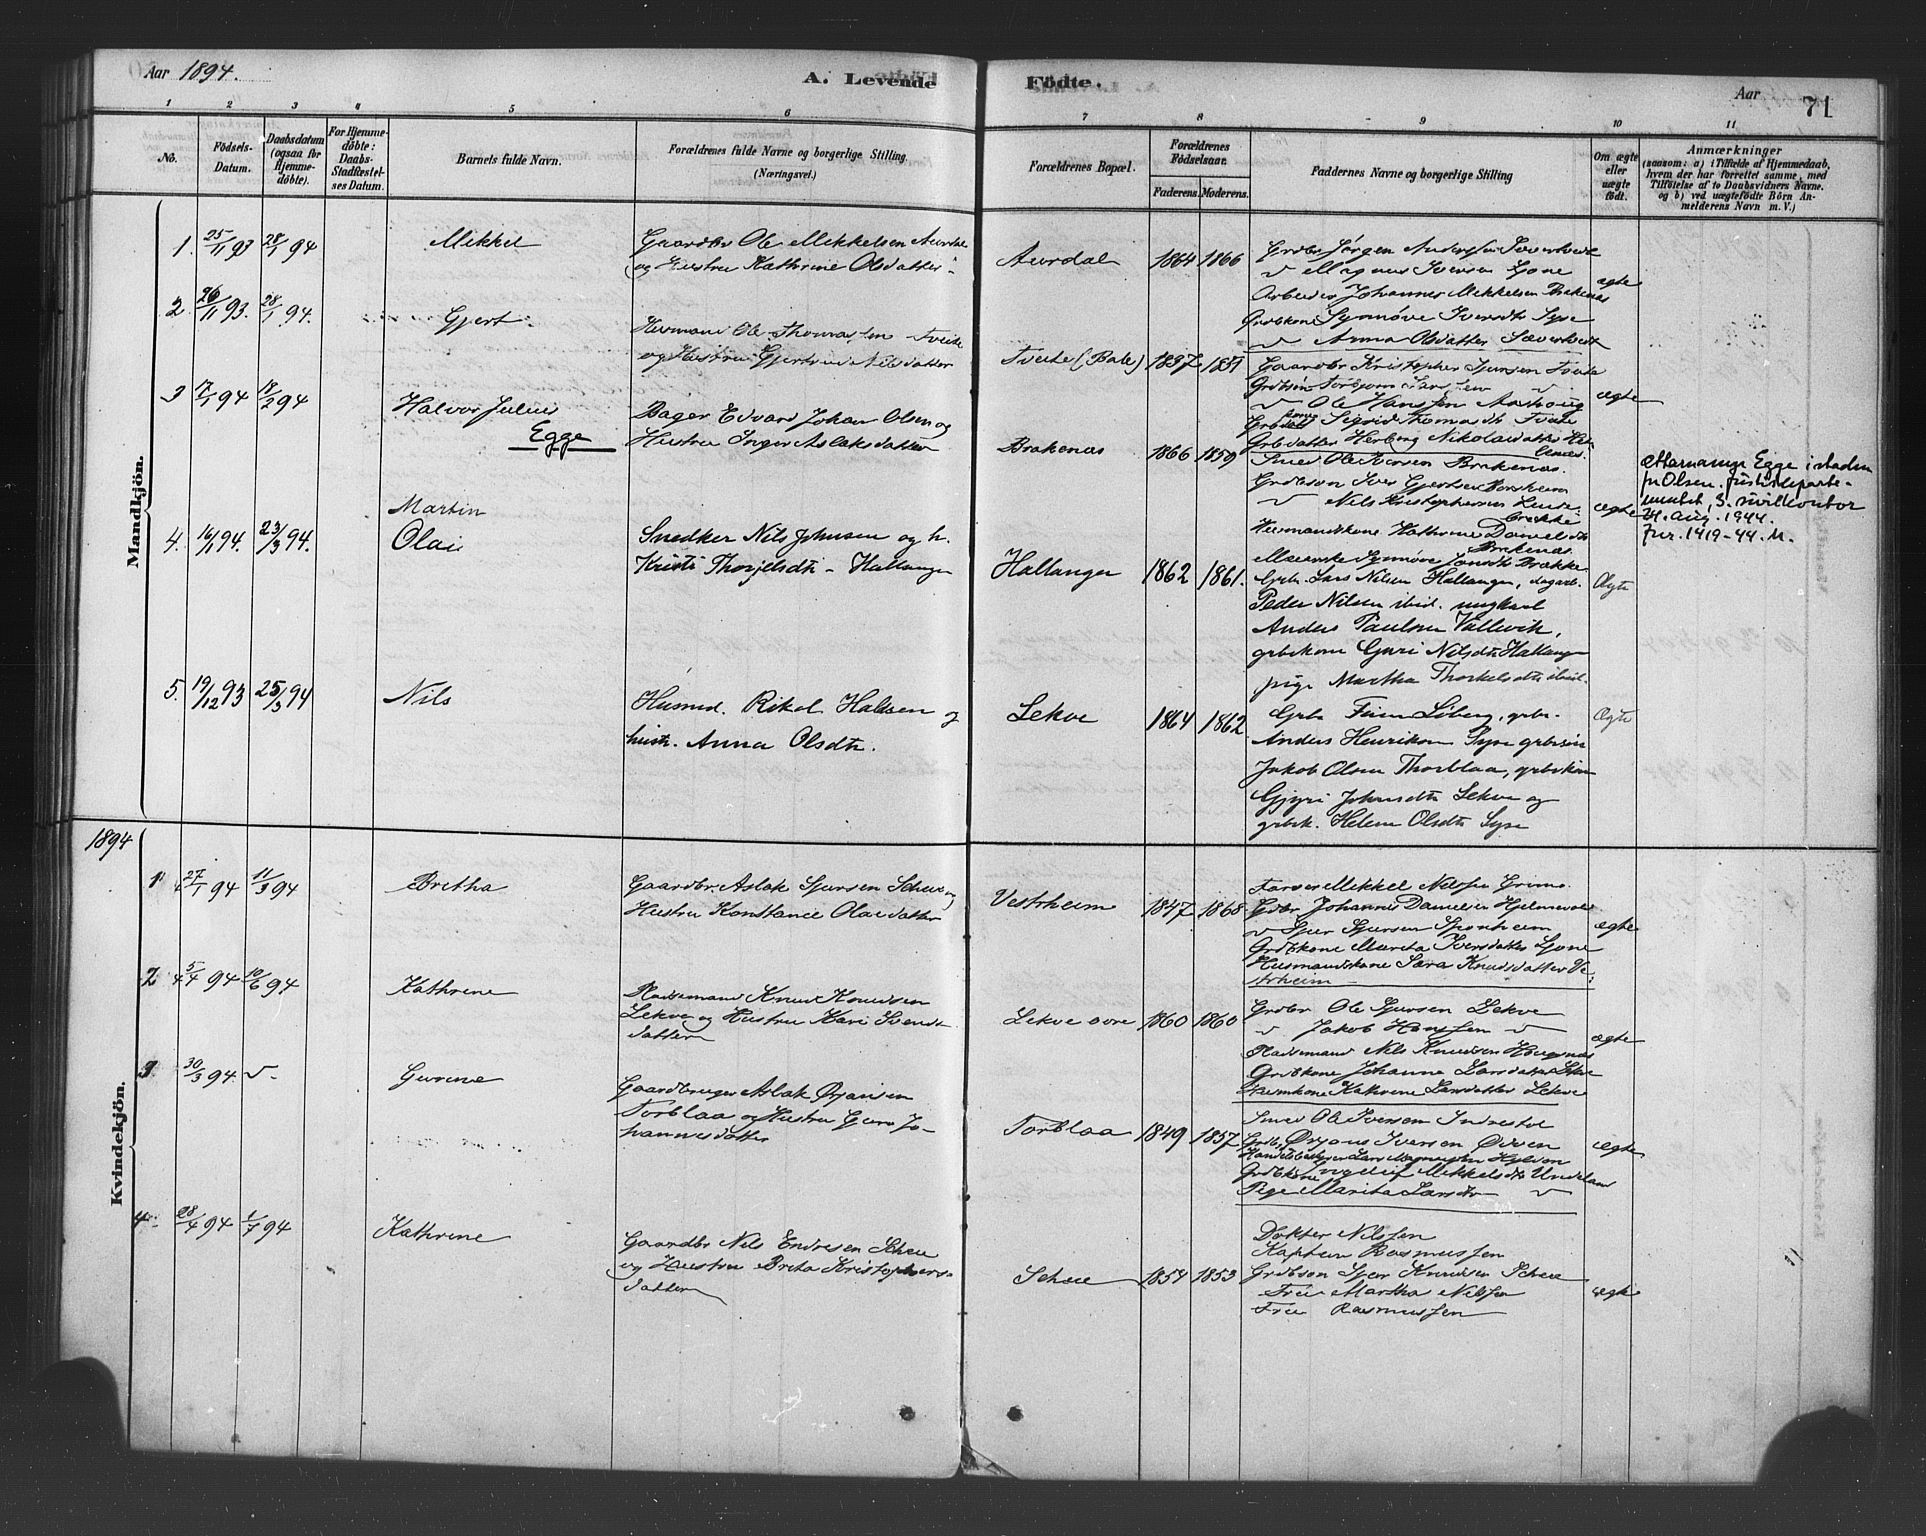 Aar 1894.
A. Levende
Födte.
Aar
71
1 2 3 4 5 6 7 8 9 10 11
No.
Födsels-
Datum.
Daabsdatum
(ogsaa for
Hjemme-
döbte).
For Hjemme-
döbte:
Daabs-
Stadfæstel-
ses Datum.
Barnets fulde Navn.
Forældrenes fulde Navne og borgerlige Stilling.
(Næringsvei.)
Forældrenes Bopæl.
Forældrenes
Födselsaar.
Faderens. Moderens.
Faddernes Navne og borgerlige Stilling
Om ægte
eller
uægte
födt.
Anmærkninger
(saasom: a) i Tilfælde af Hjemmedaab,
hvem der har forrettet samme, med
Tilföielse af to Daabsvidners Navne.
og b) ved uægtefödte Börn An-
melderens Navn m. V.)
Mandkjön.
1. 25/11 93 28/1 94
Mikkel
Gaardbr Ole Mikkelsen Aurdal
og Hustru Kathrine Olsdatter
Aurdal
1864 1866
Grdbr Jørgen Andersen
v Magnus Iversen Lione
Arbeider Johannes Mikkelsen Brakenæs
Grdbkone Synnøve Iversdtr Syse
v Anna Olsdatter
ægte
2. 26/11 93. 28/1 94.
Gjert
Husmand Ole Thomassen Tveite
og Hustru Gjertrud Nilsdatter
Tveite (Bale)
1837 1851
Gaardbr Kristopher Sjursen Tveite
Grdbsøn Torbjørn Larssen v
v Ole Hanssen
Sigrid Thomasdtr Tveite
Grbdatter Herborg Nikolaidatter
ægte
3 17/1 94 18/2 94
Halvor Julius
Egge
Bager Edvard Johan Olsen og
Hustru Inger Aslaksdatter
Brakenæs
1866 1859
Smed Ole Iversen Brakenæs.
Grdbson Iver Gjertsen
v Nils Kristophersen
Husmandskone Kathrine Danielsdtr
Brakenæs.
Synnøve Brække
ægte
Etternamnet Egge i staden
for Olsen. Justisdeparte-
mentet, 3. sivilkontor
21. aug. 1944.
jnr. 1419-44. M.
4. 16/1 94. 23/3 94.
Martin
Olai
Snedker Nils Johnsen og h.
Kristi Thorjelsdtr - Hallanger
Hallanger
1862 1861.
Grbr. Lars Nilsen Hallanger, dagarb.
Peder Nilsen ibid. ungkarl
Anders Paulsen Vallevik,
grbkone Guri Nilsdtr Hallanger
pige Martha Thorkelsdtr ibid.
Ægte
5. 19/12 93 25/3 94
Nils
Husmd. Rikol Halsen og
hustr. Anna Olsdtr.
Lekve
1864 1862
Grbr Finn Liberg, grbr.
Anders Henrikson Syse grbrsøn
Jakob Olsen Thorblaa, grbrkone
Gjyri Johansdtr Lekve og
grbrk. Helene Olsdtr Syse
Ægte
1894
Kvindekjön.
1 27/1 94 11/3 94
Bretha
Gaardbr. Aslak Sjursen Scheie og
Hustru Konstance Olaidatter
Vestrheim
1847 1868
Farver Mikkel Nilssen Grimo.
Gdbr Johannes Danielsen Hjelmevold
v Sjur Sjursen Sponheim
Grdbkone Marita Iversdatter Lione
Husmandskone Sara Knudsdatter Ve-
strheim
ægte
2 5/4 94 10/6 94
Kathrine
Pladsemand Knud Knudsen
Lekve og Hustru Kari Svends
datter
Lekve øvre
1860 1860
Grdbr Ole Sjursen Lekve
v Jakob Hanssen v
Pladsemand Nils Knudsen
Grdbkone Johanna Larsdatter Lekve
Husmkone Kathrine Larsdatter Lekve
ægte
3. 30/3 94 v.
Gurine
Gaardbruger Aslak Ørjansen
Torblaa og Hustru Guro Jo-
hannesdatter
Torblaa
1849 1857
Smed Ole Iversen Indrestøl
Grdb. Ørjans Iversen Øvsen
Grdbkone Ingeleif Mikkelsdtr Undeland
Pige Marita Larsdtr v
ægte
4. 28/4 94 1/7 94
Kathrine
Gaardbr Nils Endresen Scheie
og Hustru Brita Kristophers-
datter
Scheie
1854 1853
Dokter Nilssen
Kaptein Rasmussen
Grdbson Sjur Knudsen Scheie
Frue Martha Nilssen
Frue Rasmussen
ægte